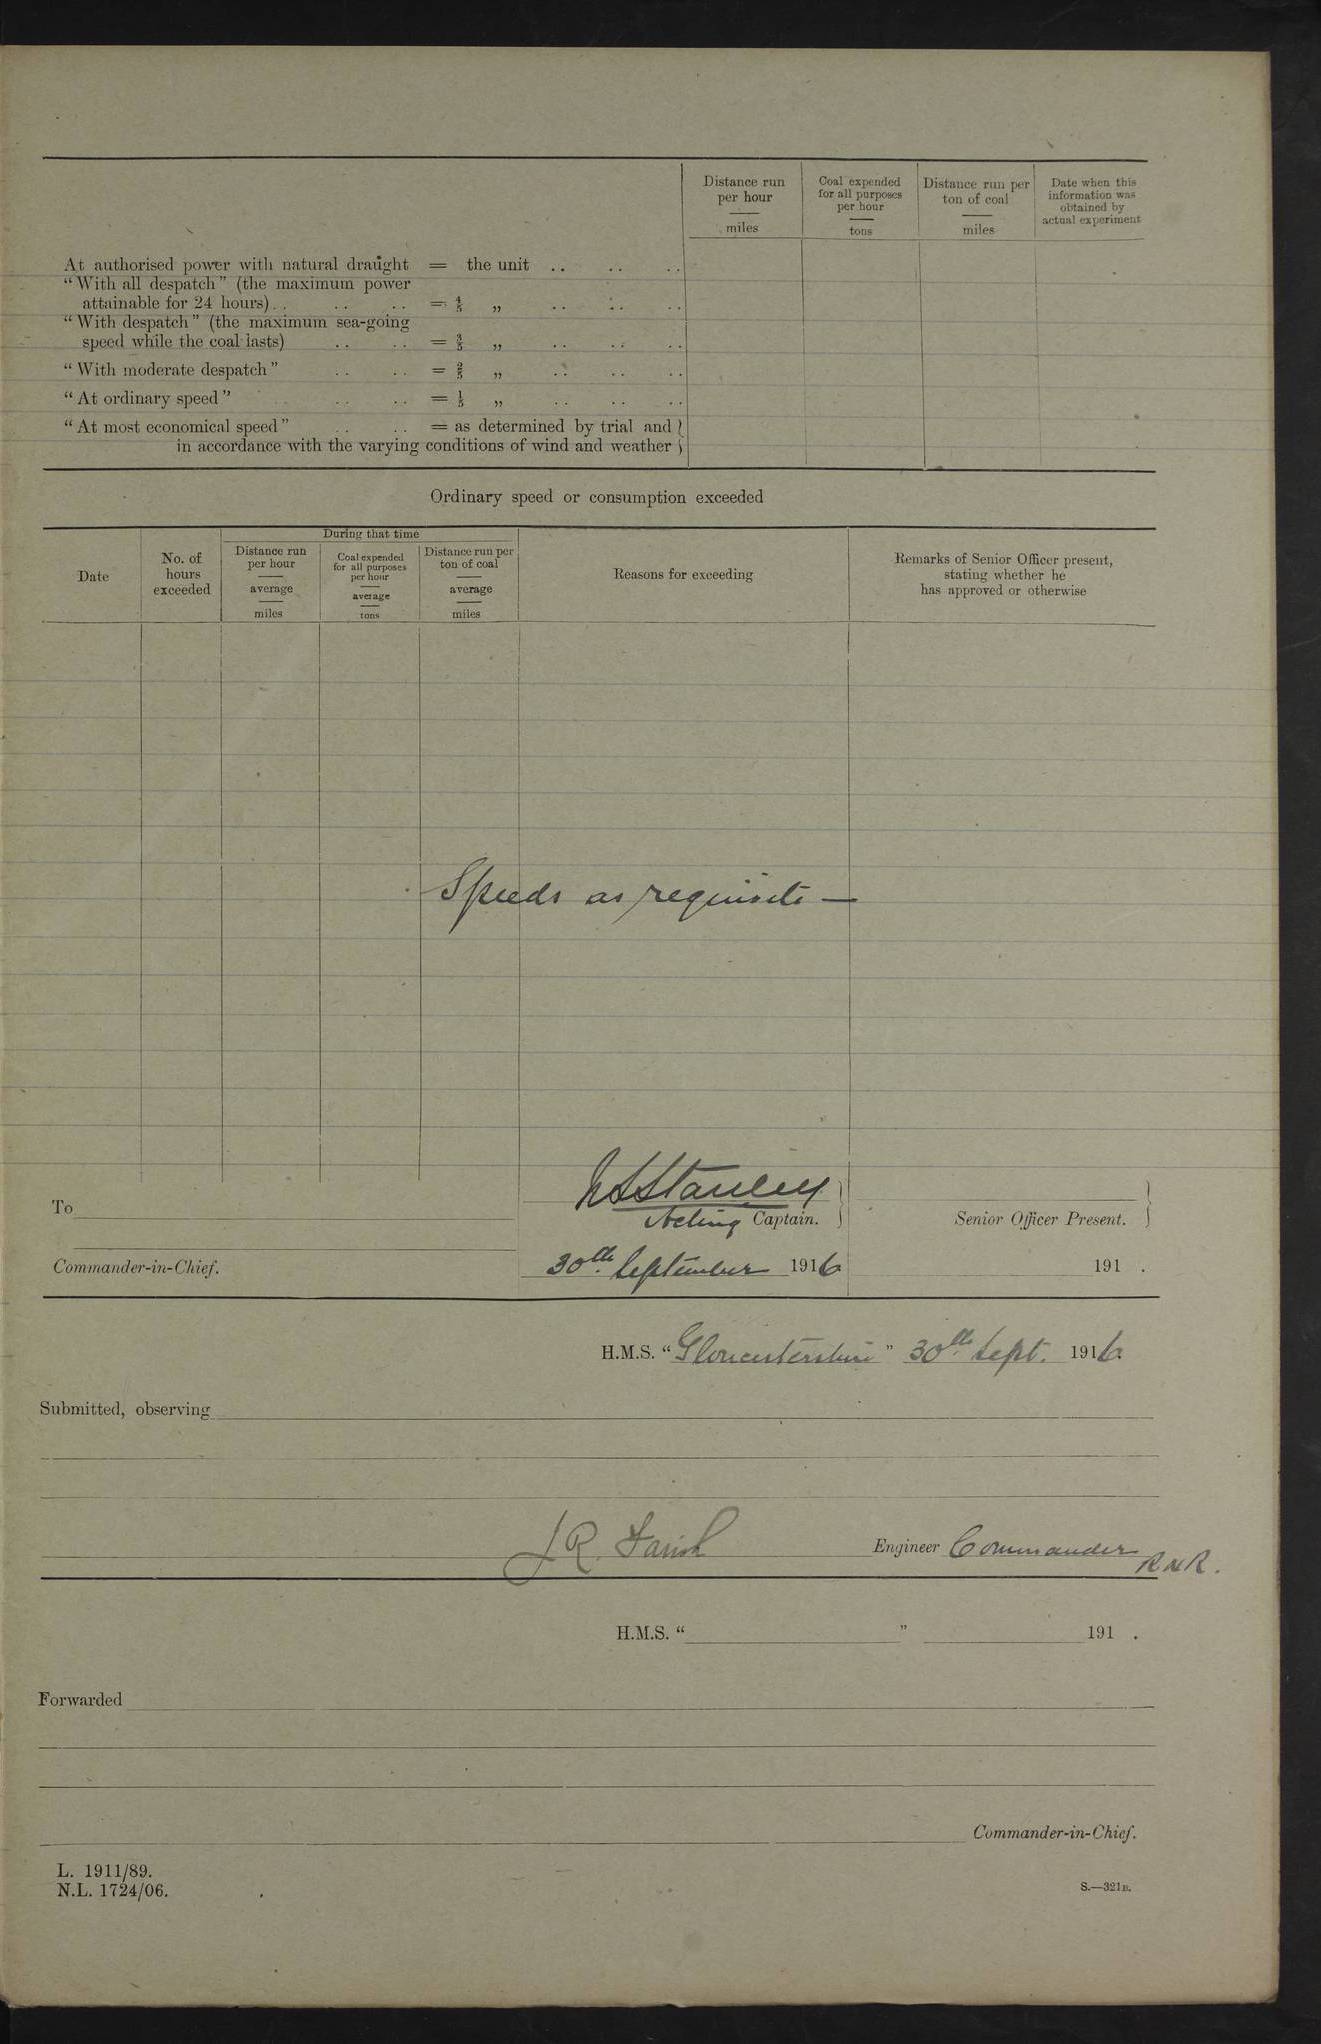 Distance run per hour miles
Coal expended for all purposes per hour tons
Distance run per ton of coal miles
Date when this information was obtained by actual experiment
At authorised power with natural draught = the unit .. .. ..
“With all despatch” (the maximum power
attainable for 24 hours) .. .. .. = 4/5 „ .. .. ..
“With despatch” (the maximum sea-going
speed while the coal lasts) .. .. = 3/5 „ .. .. ..
“With moderate despatch” .. .. = 2/5 „ .. .. ..
“At ordinary speed” .. .. .. = 1/5 „ .. .. ..
“At most economical speed” .. .. = as determined by trial and
in accordance with the varying conditions of wind and weather
Ordinary speed or consumption exceeded
Date
No. of hours exceeded
During that time
Distance run per hour average miles
Coal expended for all purposes per hour average tons
Distance run per ton of coal average miles
Reasons for exceeding
Remarks of Senior Officer present, stating whether he has approved or otherwise
Speeds as requisite —
To
Stanley
Acting Captain.
Senior Officer Present.
Commander-in-Chief.
30th September 1916
191 .
H.M.S. “Gloucestershire” 30th Sept. 1916.
Submitted, observing
J R. Farish
Engineer Commander
R N R.
H.M.S. “ ” 191 .
Forwarded
Commander-in-Chief.
L. 1911/89.
N.L. 1724/06.
S.—321B.